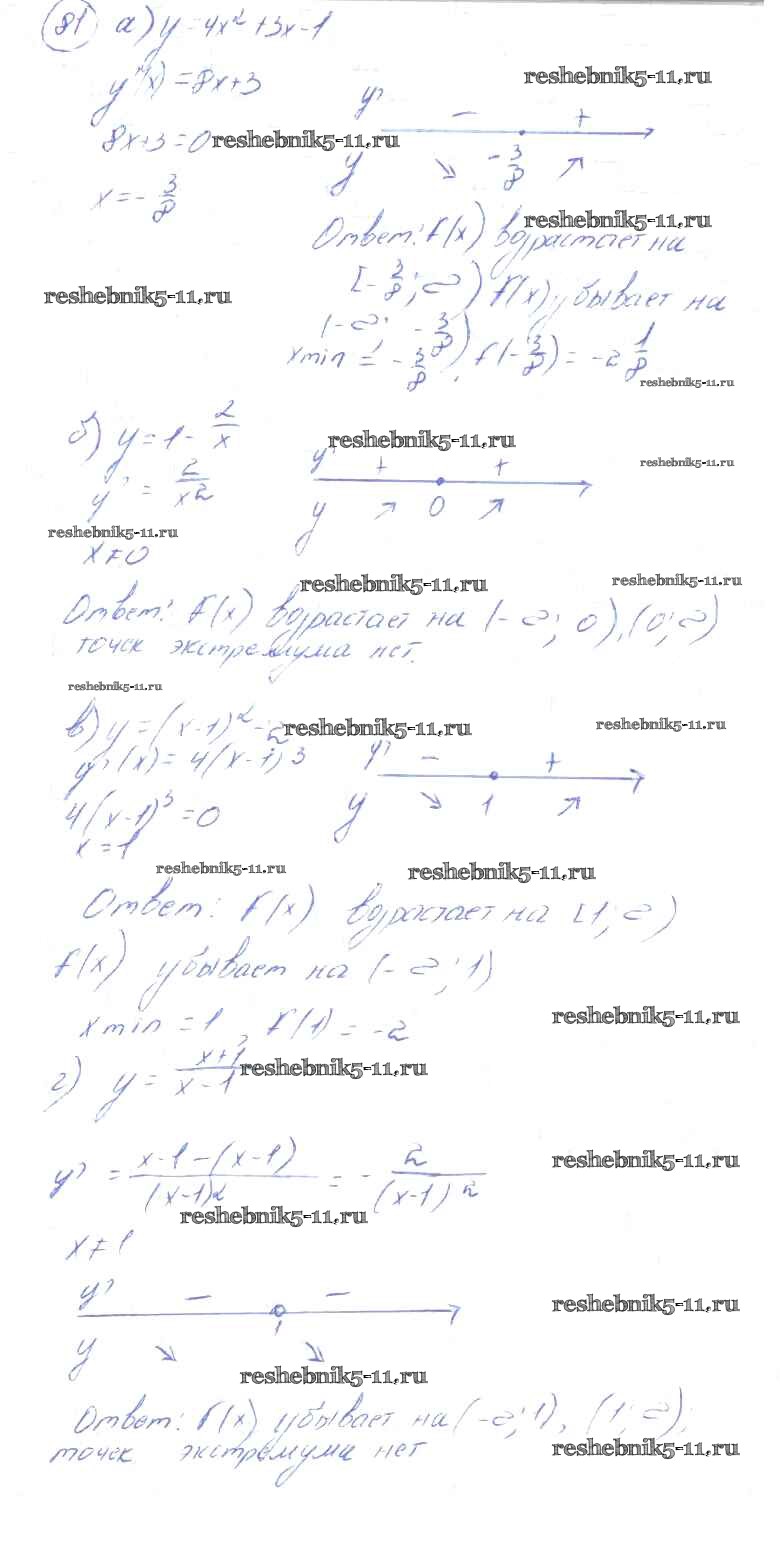 81 а) y = 4x² + 3x - 1
y'(x) = 8x+3
reshebnik5-11.ru
8x+3 = 0 reshebnik5-11.ru
y' - +
y ↘ -3/8 ↗
x = -3/8
reshebnik5-11.ru
Ответ: f(x) возрастает на
reshebnik5-11.ru
[-3/8; ∞) f(x) убывает на
(-∞; -3/8)
xmin = -3/8, f(-3/8) = -2 1/8
reshebnik5-11.ru
б) y = 1 - 2/x
reshebnik5-11.ru
reshebnik5-11.ru
y' = 2/x²
y' + +
y ↗ 0 ↗
reshebnik5-11.ru
x ≠ 0
reshebnik5-11.ru
reshebnik5-11.ru
Ответ: f(x) возрастает на (-∞; 0), (0; ∞)
точек экстремума нет.
reshebnik5-11.ru
в) y = (x-1)² - 2
reshebnik5-11.ru
reshebnik5-11.ru
y'(x) = 4(x-1)³
y' - +
y ↘ 1 ↗
4(x-1)³ = 0
x = 1
reshebnik5-11.ru
reshebnik5-11.ru
Ответ: f(x) возрастает на [1; ∞)
f(x) убывает на (-∞; 1)
xmin = 1, f(1) = -2
reshebnik5-11.ru
г) y = x+1/x-1
reshebnik5-11.ru
y' = x-1-(x-1)/(x-1)² = - 2/(x-1)²
reshebnik5-11.ru
reshebnik5-11.ru
x ≠ 1
y' - -
reshebnik5-11.ru
1
y ↘ ↘
reshebnik5-11.ru
Ответ: f(x) убывает на (-∞; 1), (1; ∞);
точек экстремума нет
reshebnik5-11.ru